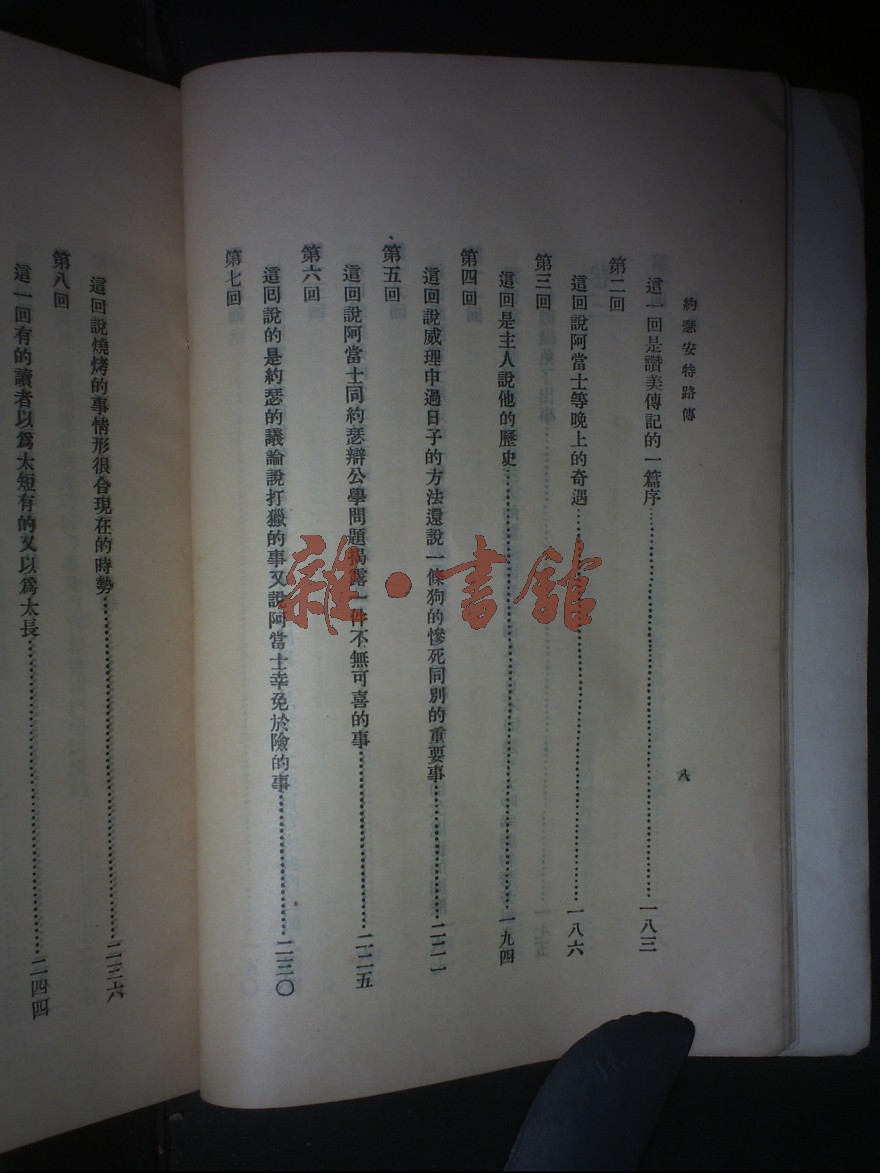 約瑟安特路傳
八
這一回是讚美傳記的一篇序……一八三
第二回
這回說阿當士等晚上的奇遇……一八六
第三回
這回是主人說他的歷史……一九四
第四回
這回說威理申過日子的方法還說一條狗的慘死同別的重要事……二二一
第五回
這回說阿當士同約瑟辯公學問題揭露一件不無可喜的事……二二五
第六回
這回說的是約瑟的議論說打獵的事又說阿當士幸免於險的事……二三〇
第七回
這回說燒烤的事情形很合現在的時勢……二三六
第八回
這一回有的讀者以爲太短有的又以爲太長……二四四
雜·書館